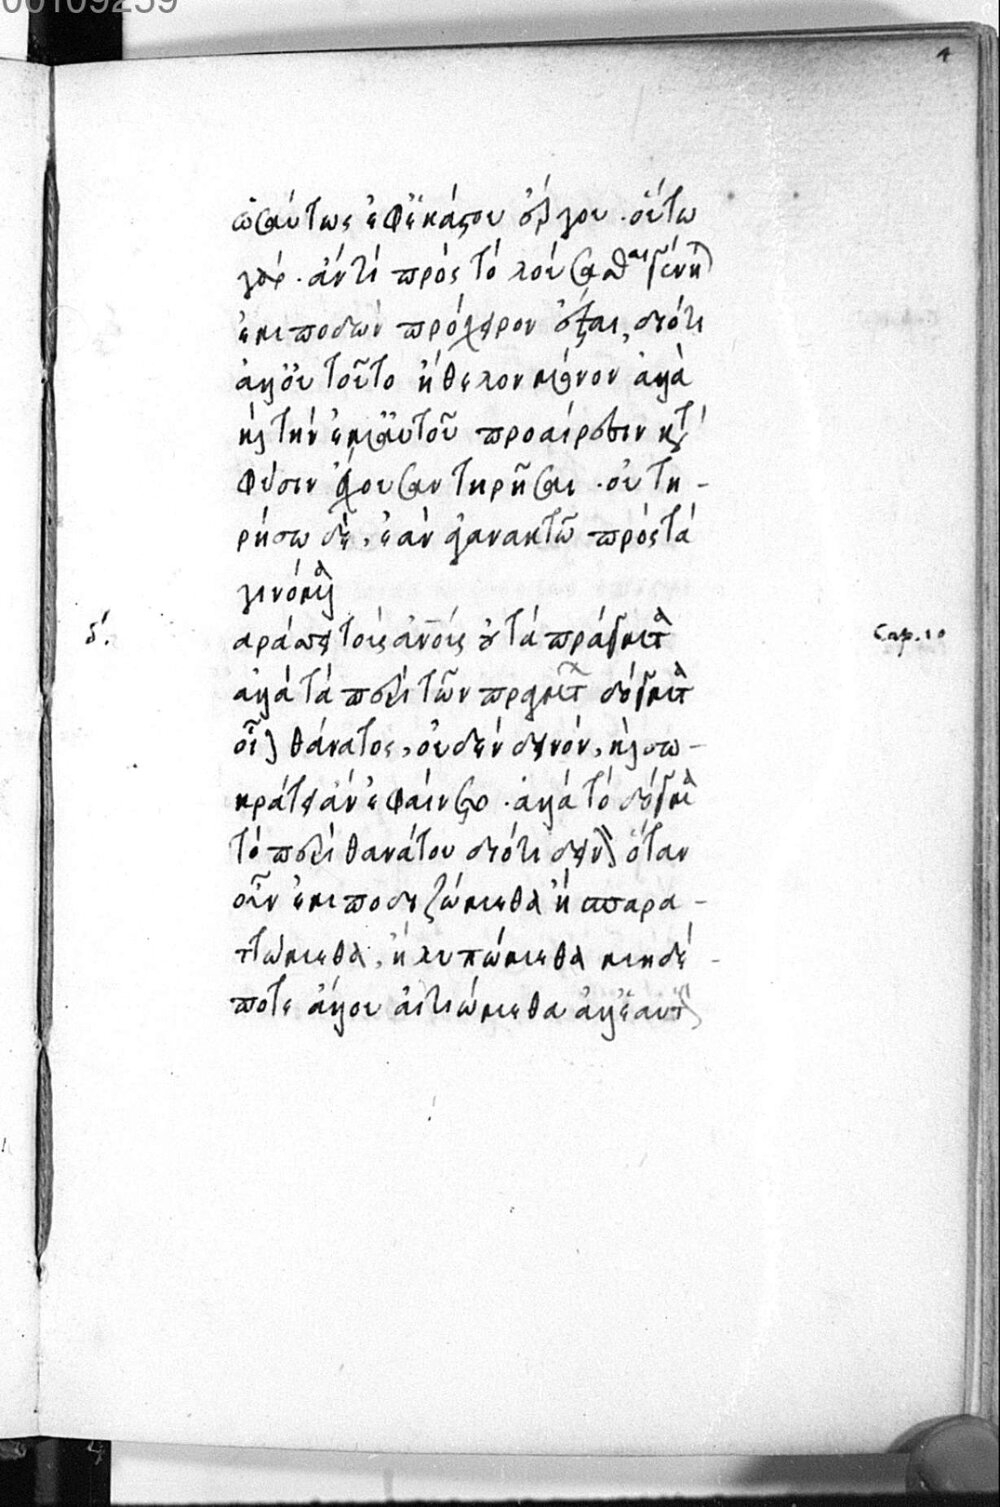 00109259
4
ὡσαύτως ἐφ' ἑκάστου ἔργου . οὕτω
γάρ . ἄν τι πρὸς τὸ λούσασθαι γένηται
ἐμποδὼν πρόχειρον ἔσται, διότι
ἀλλ' οὐ τοῦτο ἤθελον μόνον ἀλλὰ
καὶ τὴν ἐμαυτοῦ προαίρεσιν κατὰ
φύσιν ἔχουσαν τηρῆσαι . οὐ τη-
ρήσω δέ , ἐὰν ἀγανακτῶ πρὸς τὰ
γινόμενα
Cap. 10
ταράσσει τοὺς ἀνθρώπους οὐ τὰ πράγματα
ἀλλὰ τὰ περὶ τῶν πραγμάτων δόγματα
οἷον θάνατος , οὐδὲν δεινόν , καὶ σω-
κράτει ἂν ἐφαίνετο . ἀλλὰ τὸ δόγμα
τὸ περὶ θανάτου διότι δεινὸν ὅταν
οὖν ἐμποδιζώμεθα ἢ ταρα-
ττώμεθα , ἢ λυπώμεθα μηδέ-
ποτε ἄλλον αἰτιώμεθα ἀλλ' ἑαυτοὺς